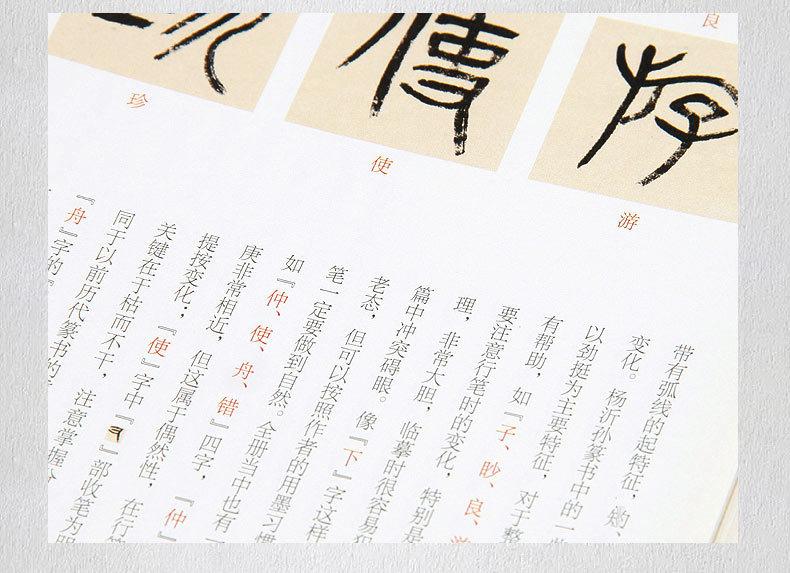 良
珍
使
游
带有弧线的起特征，
变化。杨沂孙篆书中的一
以劲挺为主要特征，对于整
有帮助，如『子、眇、良、游
要注意行笔时的变化，特别是
理，非常大胆，临摹时很容易犯
篇中冲突碍眼。像『下』字这样
老态，但可以按照作者的用墨习惯
笔一定要做到自然。全册当中也有一
如『仲、使、舟、错』四字，『仲』
庚非常相近，但这属于偶然性，在行
提按变化；『使』字中『』部收笔为
关键在于枯而不干，注意掌握
同于以前历代篆书的
『舟』字的『